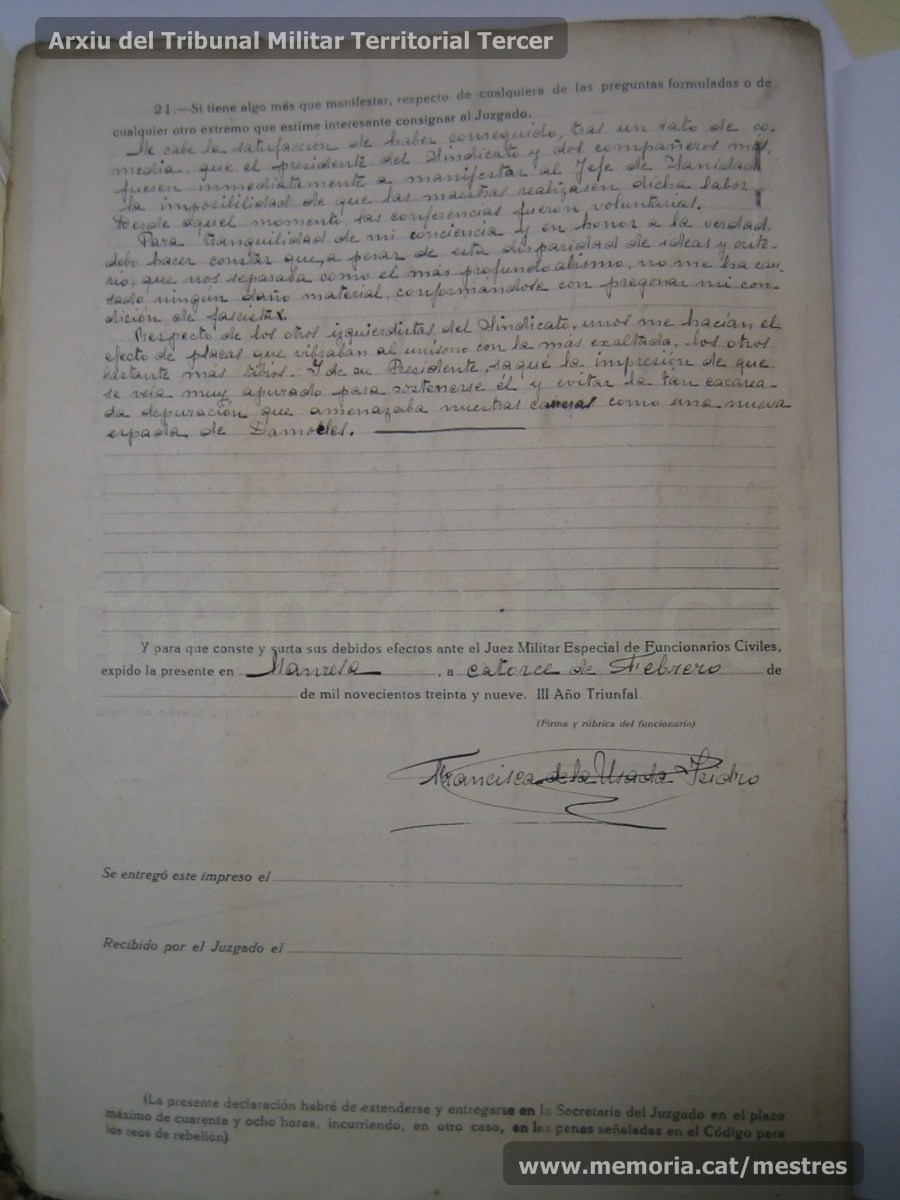 Arxiu del Tribunal Militar Territorial Tercer
21.—Si tiene algo más que manifestar, respecto de cualquiera de las preguntas formuladas o de
cualquier otro extremo que estime interesante consignar al Juzgado.
Me cabe la satisfacción de haber conseguido, tras un rato de co-
media, que el presidente del Sindicato y dos compañeros más,
fuesen inmediatamente a manifestar al Jefe de Sanidad
la imposibilidad de que las maestras realizasen dicha labor.
Desde aquel momento las conferencias fueron voluntarias.
Para tranquilidad de mi conciencia y en honor a la verdad,
debo hacer constar que, a pesar de esta disparidad de ideas y crite-
rio, que nos separaba como el más profundo abismo, no me ha cau-
sado ningún daño material, conformándose con pregonar mi con-
dición de fascista.
Respecto de los otros izquierdistas del Sindicato, unos me hacían el
efecto de placas que vibraban al unísono con la más exaltada, los otros
bastante más tibios. Y de su Presidente, saqué la impresión de que
se veía muy apurado para sostenerse él y evitar la tan cacarea-
da depuración que amenazaba nuestras carreras como una nueva
espada de Damocles.
Y para que conste y surta sus debidos efectos ante el Juez Militar Especial de Funcionarios Civiles,
expido la presente en Manresa, a catorce de Febrero de
de mil novecientos treinta y nueve. III Año Triunfal
(Firma y rúbrica del funcionario)
Francisca de la Usada Isidro
Se entregó este impreso el
Recibido por el Juzgado el
(La presente declaración habrá de extenderse y entregarse en la Secretaría del Juzgado en el plazo
máximo de cuarenta y ocho horas, incurriendo, en otro caso, en las penas señaladas en el Código para
los reos de rebelión)
www.memoria.cat/mestres
memoria.cat